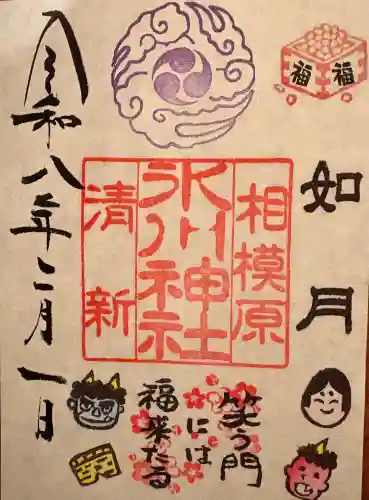 福 福
如月
相模原
氷川神社
清新
笑う門
には
福来たる
令和八年二月一日